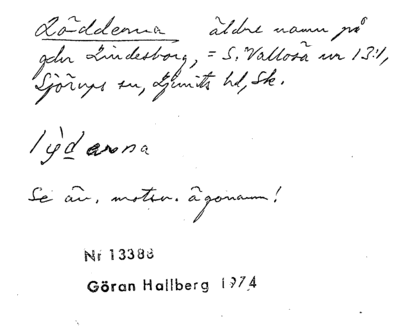 Löddderna äldre namn på
gdn Lindesborg, = S. Vallösa nr 13:1,
Sjörups sn, Ljunits hd, Sk.
Se äv. motsv. ägonamn!
Nr 13388
Göran Hallberg 1974